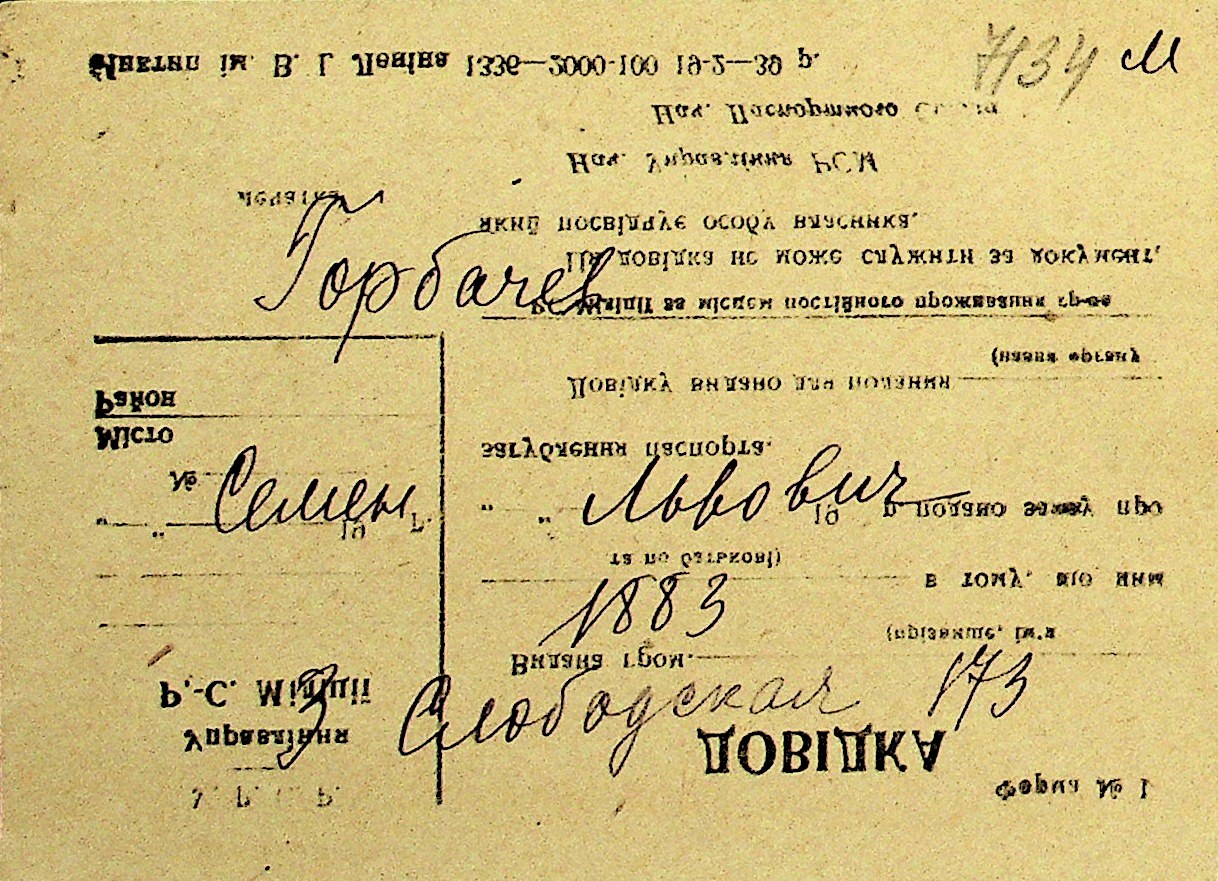 7134 М
Горбачев
Семен Львович
1883
3 Слободская 173
Форма № 1
У. Р. С. Р.
Управління
Р.-С. Міліції
" " 19 р.
№
Місто
Район
ДОВІДКА
Видана гром.
(прізвище, ім'я
в тому, що ним
та по батькові)
" " 19 р. подано заяву про
загублення паспорта.
Довідку видано для подання
(назва органу
Міліції за місцем постійного проживання гр-на
Ця довідка не може служити за документ,
який посвідчує особу власника.
печатка
Нач. Управління РСМ
Нач. Паспортного
ім. В. І. Леніна 1336—2000-100 19-2—39 р.